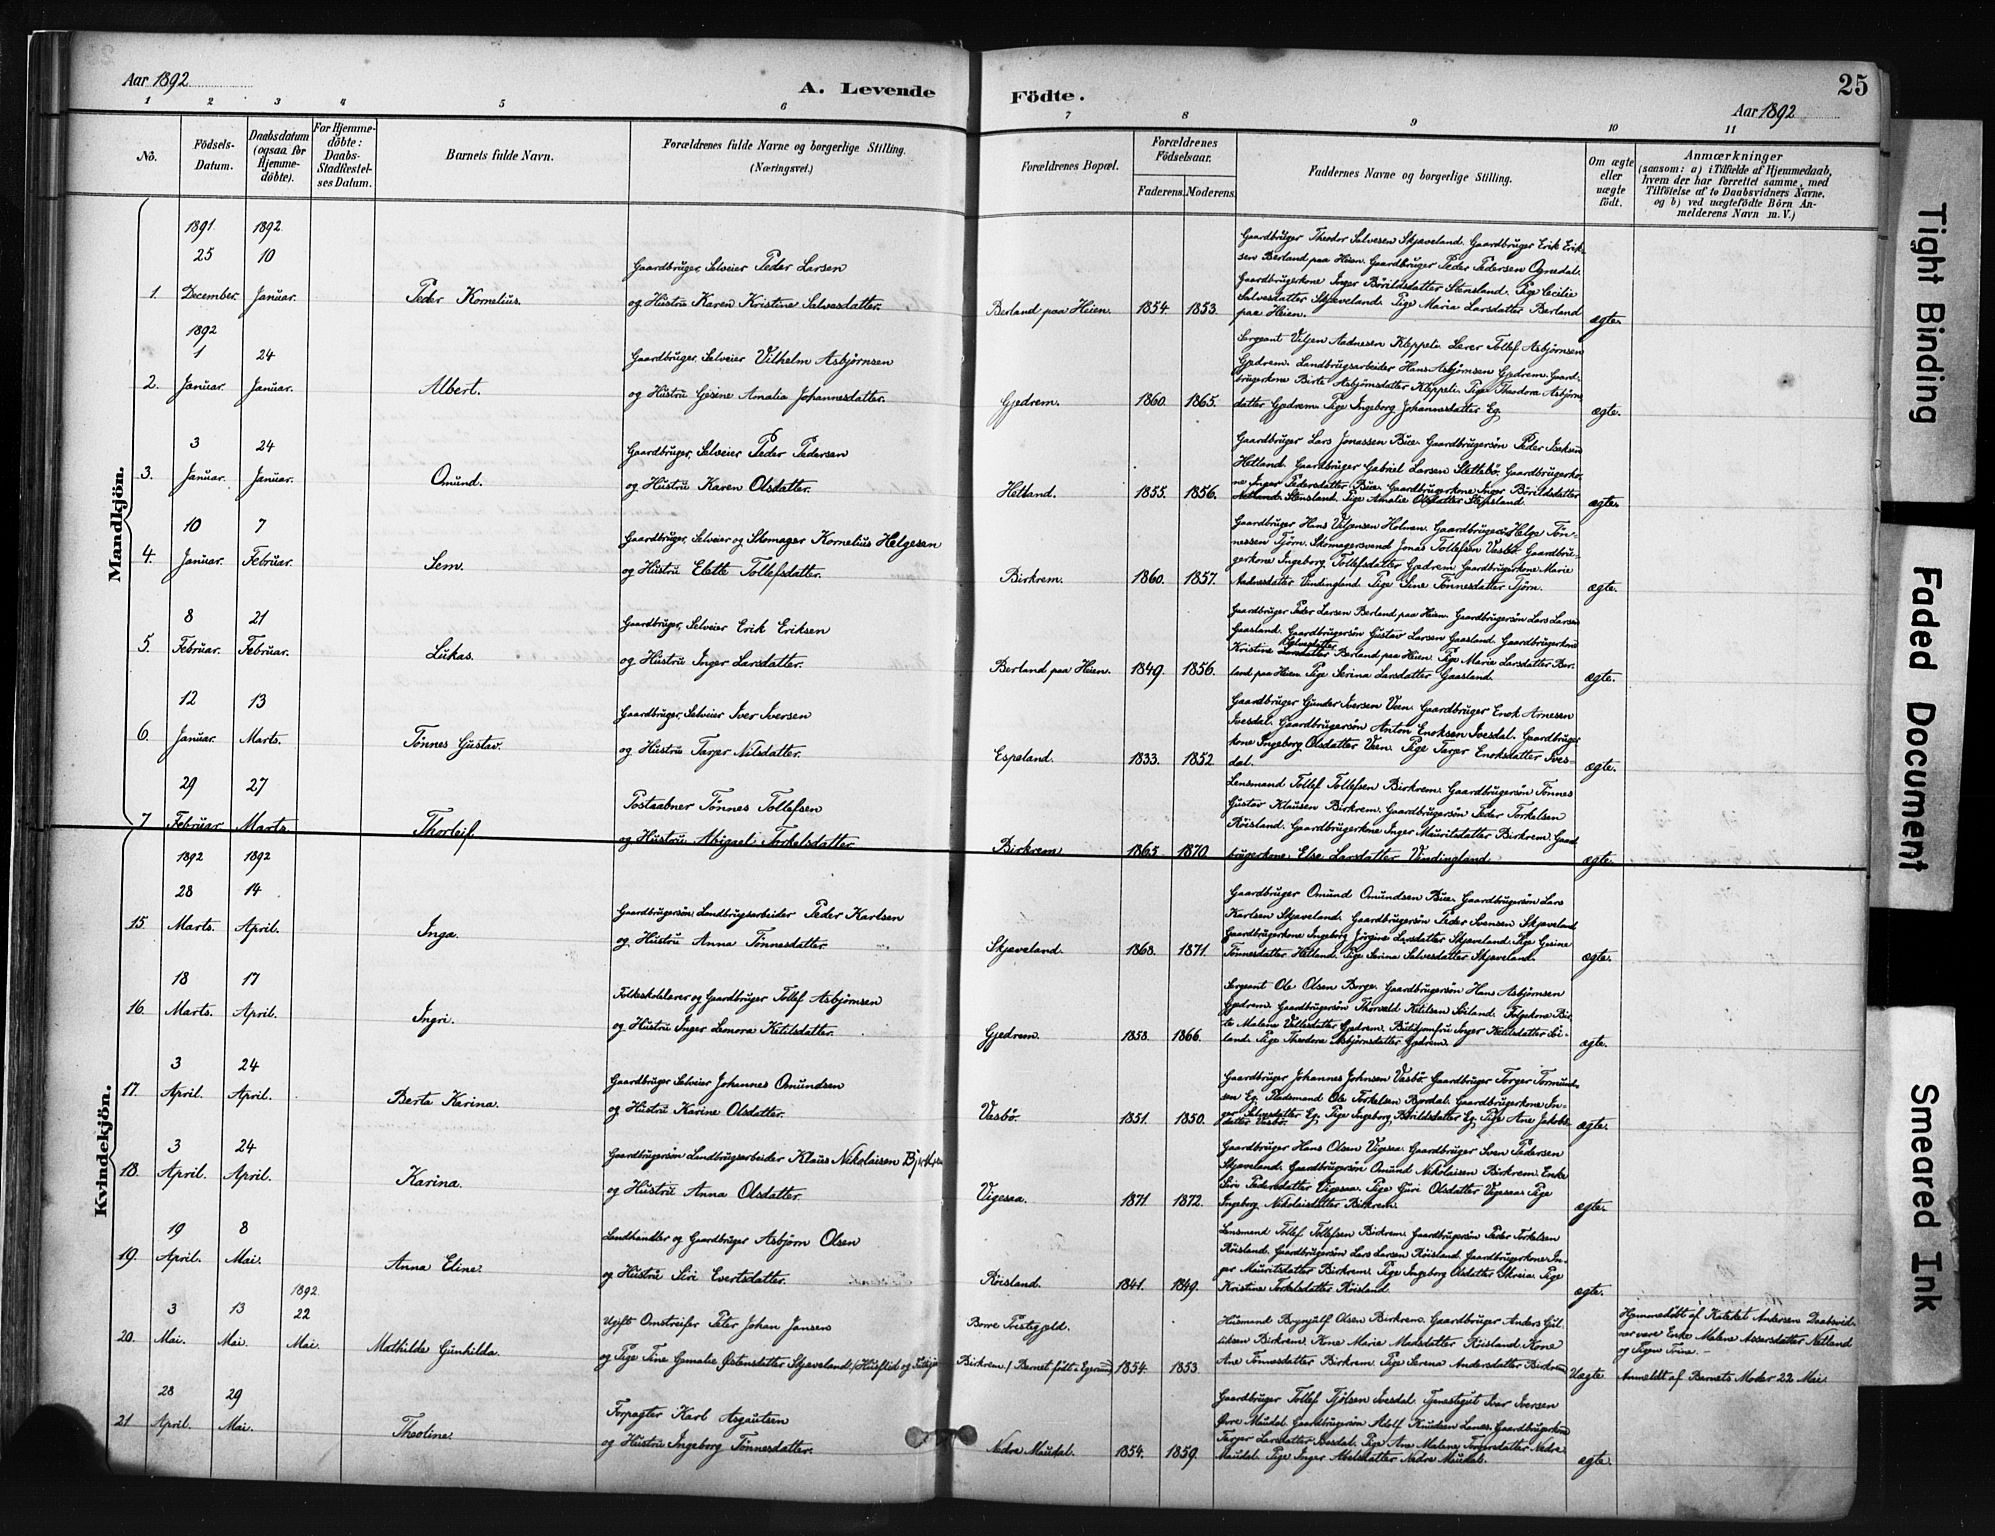 Aar 1892
A. Levende
Födte.
25
Aar 1892
1 2 3 4 5 6 7 8 9 10 11
No.
Födsels-
Datum.
Daabsdatum
(ogsaa for
Hjemme-
döbte).
For Hjemme-
döbte:
Daabs-
Stadfæstel-
ses Datum.
Barnets fulde Navn.
Forældrenes fulde Navne og borgerlige Stilling.
(Næringsvei.)
Forældrenes Bopæl.
Forældrenes
Födselsaar.
Faderens. Moderens.
Faddernes Navne og borgerlige Stilling.
Om ægte
eller
uægte
födt.
Anmærkninger
(saasom: a) i Tilfælde af Hjemmedaab,
hvem der har forrettet samme, med
Tilföielse af to Daabsvidners Navne.
og b) ved uægtefödte Börn An-
melderens Navn m. V.)
Mandkjön.
1891 1892
25 10
1. December. Januar.
Peder Kornelius.
Gaardbruger, Selveier Peder Larsen
og Hustru Karen Kristine Salvesdatter.
Berland paa Heien. 1854. 1853.
Gaardbruger Theodor Salvesen Skjæveland. Gaardbruger Erik Erik-
sen Berland paa Heien. Gaardbruger Peder Pedersen Ognedal.
Gaardbrugerkone Inger Börildsdatter Stensland. Pige Cecilie
Salvesdatter Skjæveland. Pige Maria Larsdatter Berland
paa Heien.
ægte.
1892
1 24
2. Januar. Januar.
Albert.
Gaardbruger, Selveier Vilhelm Asbjørnsen
og Hustru Gesine Amalia Johannesdatter.
Gjedrem. 1860. 1865.
Sergeant Viljen Aadnesen Kleppeli. Lærer Tollef Asbjørnsen
Gjedrem. Landbrugsarbeider Hans Asbjørnsen Gjedrem. Gaard-
brugerkone Birte Asbjørnsdatter Kleppeli. Pige Theodora Asbjørns
datter Gjedrem. Pige Ingeborg Johannesdatter Eg.
ægte.
3 24
3. Januar. Januar.
Omund.
Gaardbruger, Selveier Peder Pedersen
og Hustru Karen Olsdatter.
Hetland. 1855. 1856.
Gaardbruger Lars Jonassen Bue. Gaardbrugersøn Peder Iseksen
Hetland. Gaardbruger Gabriel Larsen Slettebö. Gaardbrugerko-
ne Inger Pedersdatter Bue. Gaardbrugerkone Inger Börildsdatter
Hetland Stensland. Pige Amalie Olsdatter Stensland.
ægte.
10 7
4. Januar. Februar.
Sem.
Gaardbruger, Selveier og Skomager Kornelius Helgesen
og Hustru Elette Tollefsdatter.
Birkrem. 1860. 1857.
Gaardbruger Hans Viljensen Holmen. Gaardbruger Helge Tön-
nessen Tjörn. Skomagersvend Jonas Tollefsen Vasbö. Gaardbru-
gerkone Ingeborg Tollefsdatter Gjedrem. Gaardbrugerkone Marie
Andersdatter Vindingland. Pige Sine Tönnesdatter Tjörn.
ægte.
8 21
5. Februar. Februar.
Lukas.
Gaardbruger, Selveier Erik Eriksen
og Hustru Inger Larsdatter.
Berland paa Heien. 1849. 1856.
Gaardbruger Peder Larsen Berland paa Heien. Gaardbrugersøn Lars Larsen
Gaasland. Gaardbrugersøn Gustav Larsen Gaasland. Gaardbrugerkone
Kristine Salvesdatter Larsdatter Berland paa Heien. Pige Marie Larsdatter Ber-
land paa Heien. Pige Serina Larsdatter Gaasland.
ægte.
12 13
6. Januar. Marts.
Tönnes Gustav.
Gaardbruger, Selveier Iver Iversen
og Hustru Tarjer Nilsdatter.
Espeland. 1833. 1852.
Gaardbruger Gunder Iversen Veen. Gaardbruger Enok Arnesen
Ivesdal. Gaardbrugersøn Anton Enoksen Ivesdal. Gaardbruger
kone Ingeborg Olsdatter Veen. Pige Tarjer Enoksdatter Ives-
dal.
ægte.
29 27
7 Februar Marts
Thorleif
Postaabner Tönnes Tollefsen
og Hustru Abigael Torkelsdatter
Birkrem 1865 1870
Lensmand Tollef Tollefsen Birkrem. Gaardbrugersøn Tönnes
Gustav Klausen Birkrem. Gaardbrugersøn Peder Torkelsen
Röisland. Gaardbrugerkone Inger Mauritsdatter Birkrem. Gaard
brugerkone Else Larsdatter Vindingland
ægte.
Kvindekjön.
1892 1892
28 14
15 Marts. April.
Inga.
Gaardbrugersøn, Landbrugsarbeider Peder Karlsen
og Hustru Anna Tönnesdatter.
Skjæveland. 1868. 1871.
Gaardbruger Omund Omundsen Bue. Gaardbrugersøn Lars
Karlsen Skjæveland. Gaardbrugersøn Peder Svensen Skjæveland
Gaardbrugerkone Ingeborg Jörgine Larsdatter Skjæveland. Pige Gesine
Tönnesdatter Hetland. Pige Serina Salvesdatter Skjæveland.
ægte.
18 17
16. Marts. April.
Ingri.
Folkeskolelærer og Gaardbruger Tollef Asbjørnsen
og Hustru Inger Lenora Ketilsdatter.
Gjedrem. 1858. 1866.
Sergeant Ole Olsen Berge. Gaardbrugersøn Hans Asbjørnsen
Gjedrem. Gaardbrugersøn Thorvald Ketilsen Söiland. Følgekone Bir-
te Malene Vellesdatter Gjedrem. Butikjomfru Inger Ketilsdatter Söi-
land. Pige Theodora Asbjørnsdatter Gjedrem.
ægte.
3 24
17. April. April.
Berta Karina.
Gaardbruger Selveier Johannes Omundsen
og Hustru Karine Olsdatter.
Vasbö. 1851. 1850.
Gaardbruger Johannes Johnsen Vasbö. Gaardbruger Torger Tormund-
sen Eg. Pladsmand Ole Torkelsen Bjordal. Gaardbrugerkone In-
ger Salvesdatter Eg. Pige Ingeborg Börildsdatter Eg. Pige Ane Jakobs-
datter Vasbö.
ægte.
3 24
18. April. April.
Karina.
Gaardbrugersøn Landbrugsarbeider Klaus Nikolaisen Bjerkrem
og Hustru Anna Olsdatter.
Vigesaa. 1871 1872.
Gaardbruger Hans Olsen Vigesaa. Gaardbruger Sven Pedersen
Skjæveland. Gaardbrugersøn Omund Nikolaisen Birkrem. Enke
Siri Pedersdatter Vigesaa. Pige Guri Olsdatter Vigesaa. Pige
Ingeborg Nikolaisdatter Birkrem.
ægte.
19 8
19. April. Mai.
Anna Eline.
Landhandler og Gaardbruger Asbjørn Olsen
og Hustru Siri Evertsdatter.
Röisland. 1841. 1849.
Lensmand Tollef Tollefsen Birkrem. Gaardbrugersøn Peder Torkelsen
Röisland. Gaardbrugersøn Lars Larsen Röisland. Gaardbrugerkone In-
ger Mauritsdatter Birkrem. Pige Ingeborg Olsdatter Skreia. Pige
Kristine Torkelsdatter Röisland.
ægte.
1892.
3 13 22
20. Mai. Mai. Mai.
Mathilde Gunhilda.
Ugift Omstreifer Peter Johan Jansen
og Pige Tine Gemalie Østensdatter Skjæveland
Borre Prestegjeld.
Birkrem. (Barnet født i Egersund) 1854. 1853
Husmand Olsen Birkrem. Gaardbruger Anders Gul-
liksen Birkrem. Kone Marie Mandatter Röisland. Kone
Ane Tönnesdatter Birkrem. Pige Serena Andersdatter Birkrem
Uægte
Hjemmedöbt af Kateket Andersen. Daabsvid-
ner vare Enke Malene Assersdatter Netland
og Pigen Trine. -
Anmeldt af Barnets Moder 22 Mai.
28 29
21 April. Mai.
Theoline.
Forpagter Karl Asgautsen
og Hustru Ingeborg Tönnesdatter.
Nedre Maudal. 1854. 1859.
Gaardbruger Tollef Tjölsen Ivesdal. Tjenestegut Ivar Iversen
Øvre Maudal. Gaardbrugersøn Adolf Knudsen Lanes. Gaardbrugerkone
Tarjer Larsdatter Ivesdal. Pige Ane Malene Torgersdatter Nedre
Maudal. Pige Inger Abelsdatter Nedre Maudal.
ægte.
Tight Binding
Faded Document
Smeared Ink